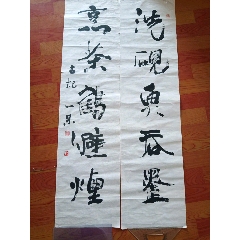 洗硯魚吞墨
烹茶鶴避煙